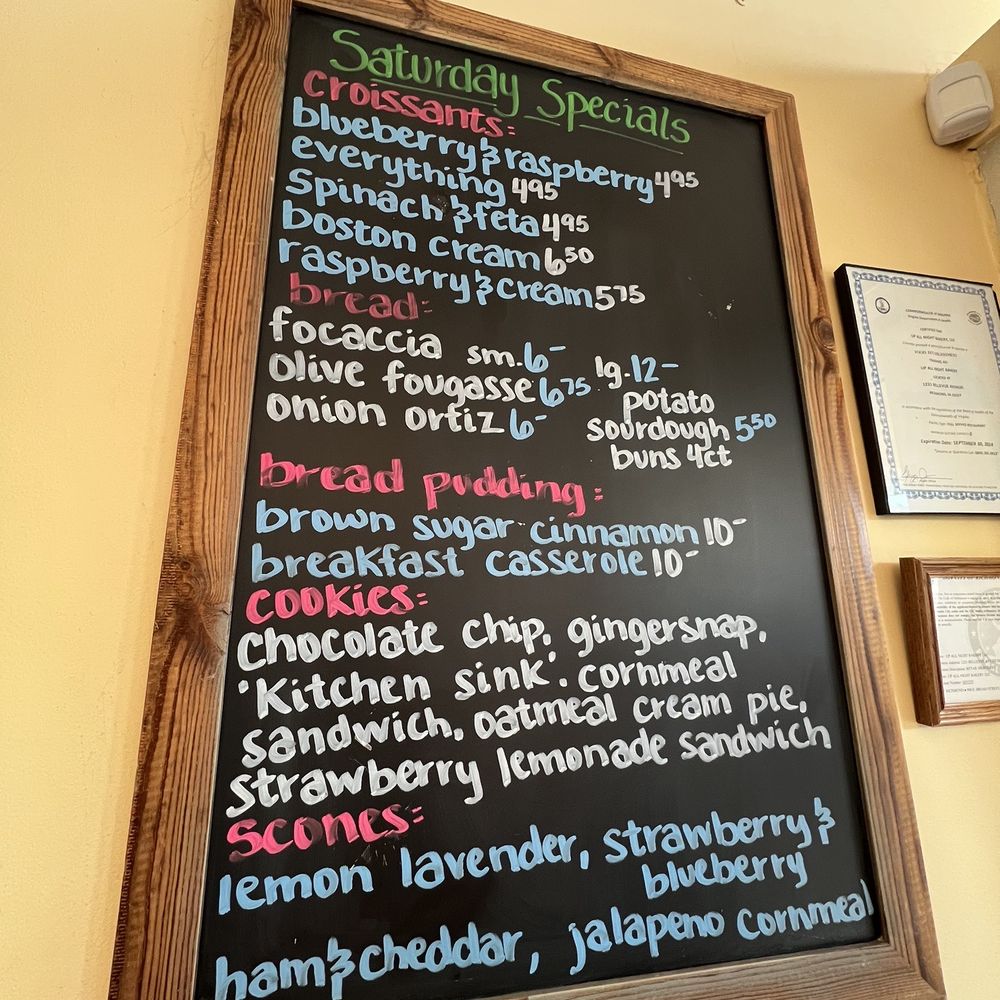 Saturday Specials
croissants:
blueberry & raspberry 4 95
everything 4 95
spinach & feta 4 95
boston cream 6 50
raspberry & cream 5 75
bread:
focaccia sm. 6- lg. 12-
olive fougasse 6 75
onion ortiz 6-
potato
sourdough 5 50
buns 4ct
bread pudding:
brown sugar cinnamon 10-
breakfast casserole 10-
cookies:
chocolate chip, gingersnap,
'Kitchen sink'. cornmeal
sandwich, oatmeal cream pie,
strawberry lemonade sandwich
scones:
lemon lavender, strawberry &
blueberry
ham & cheddar, jalapeno cornmeal
UP ALL NIGHT BAKERY, LLC
UP ALL NIGHT BAKERY
Expiration Date: SEPTEMBER 30, 2024